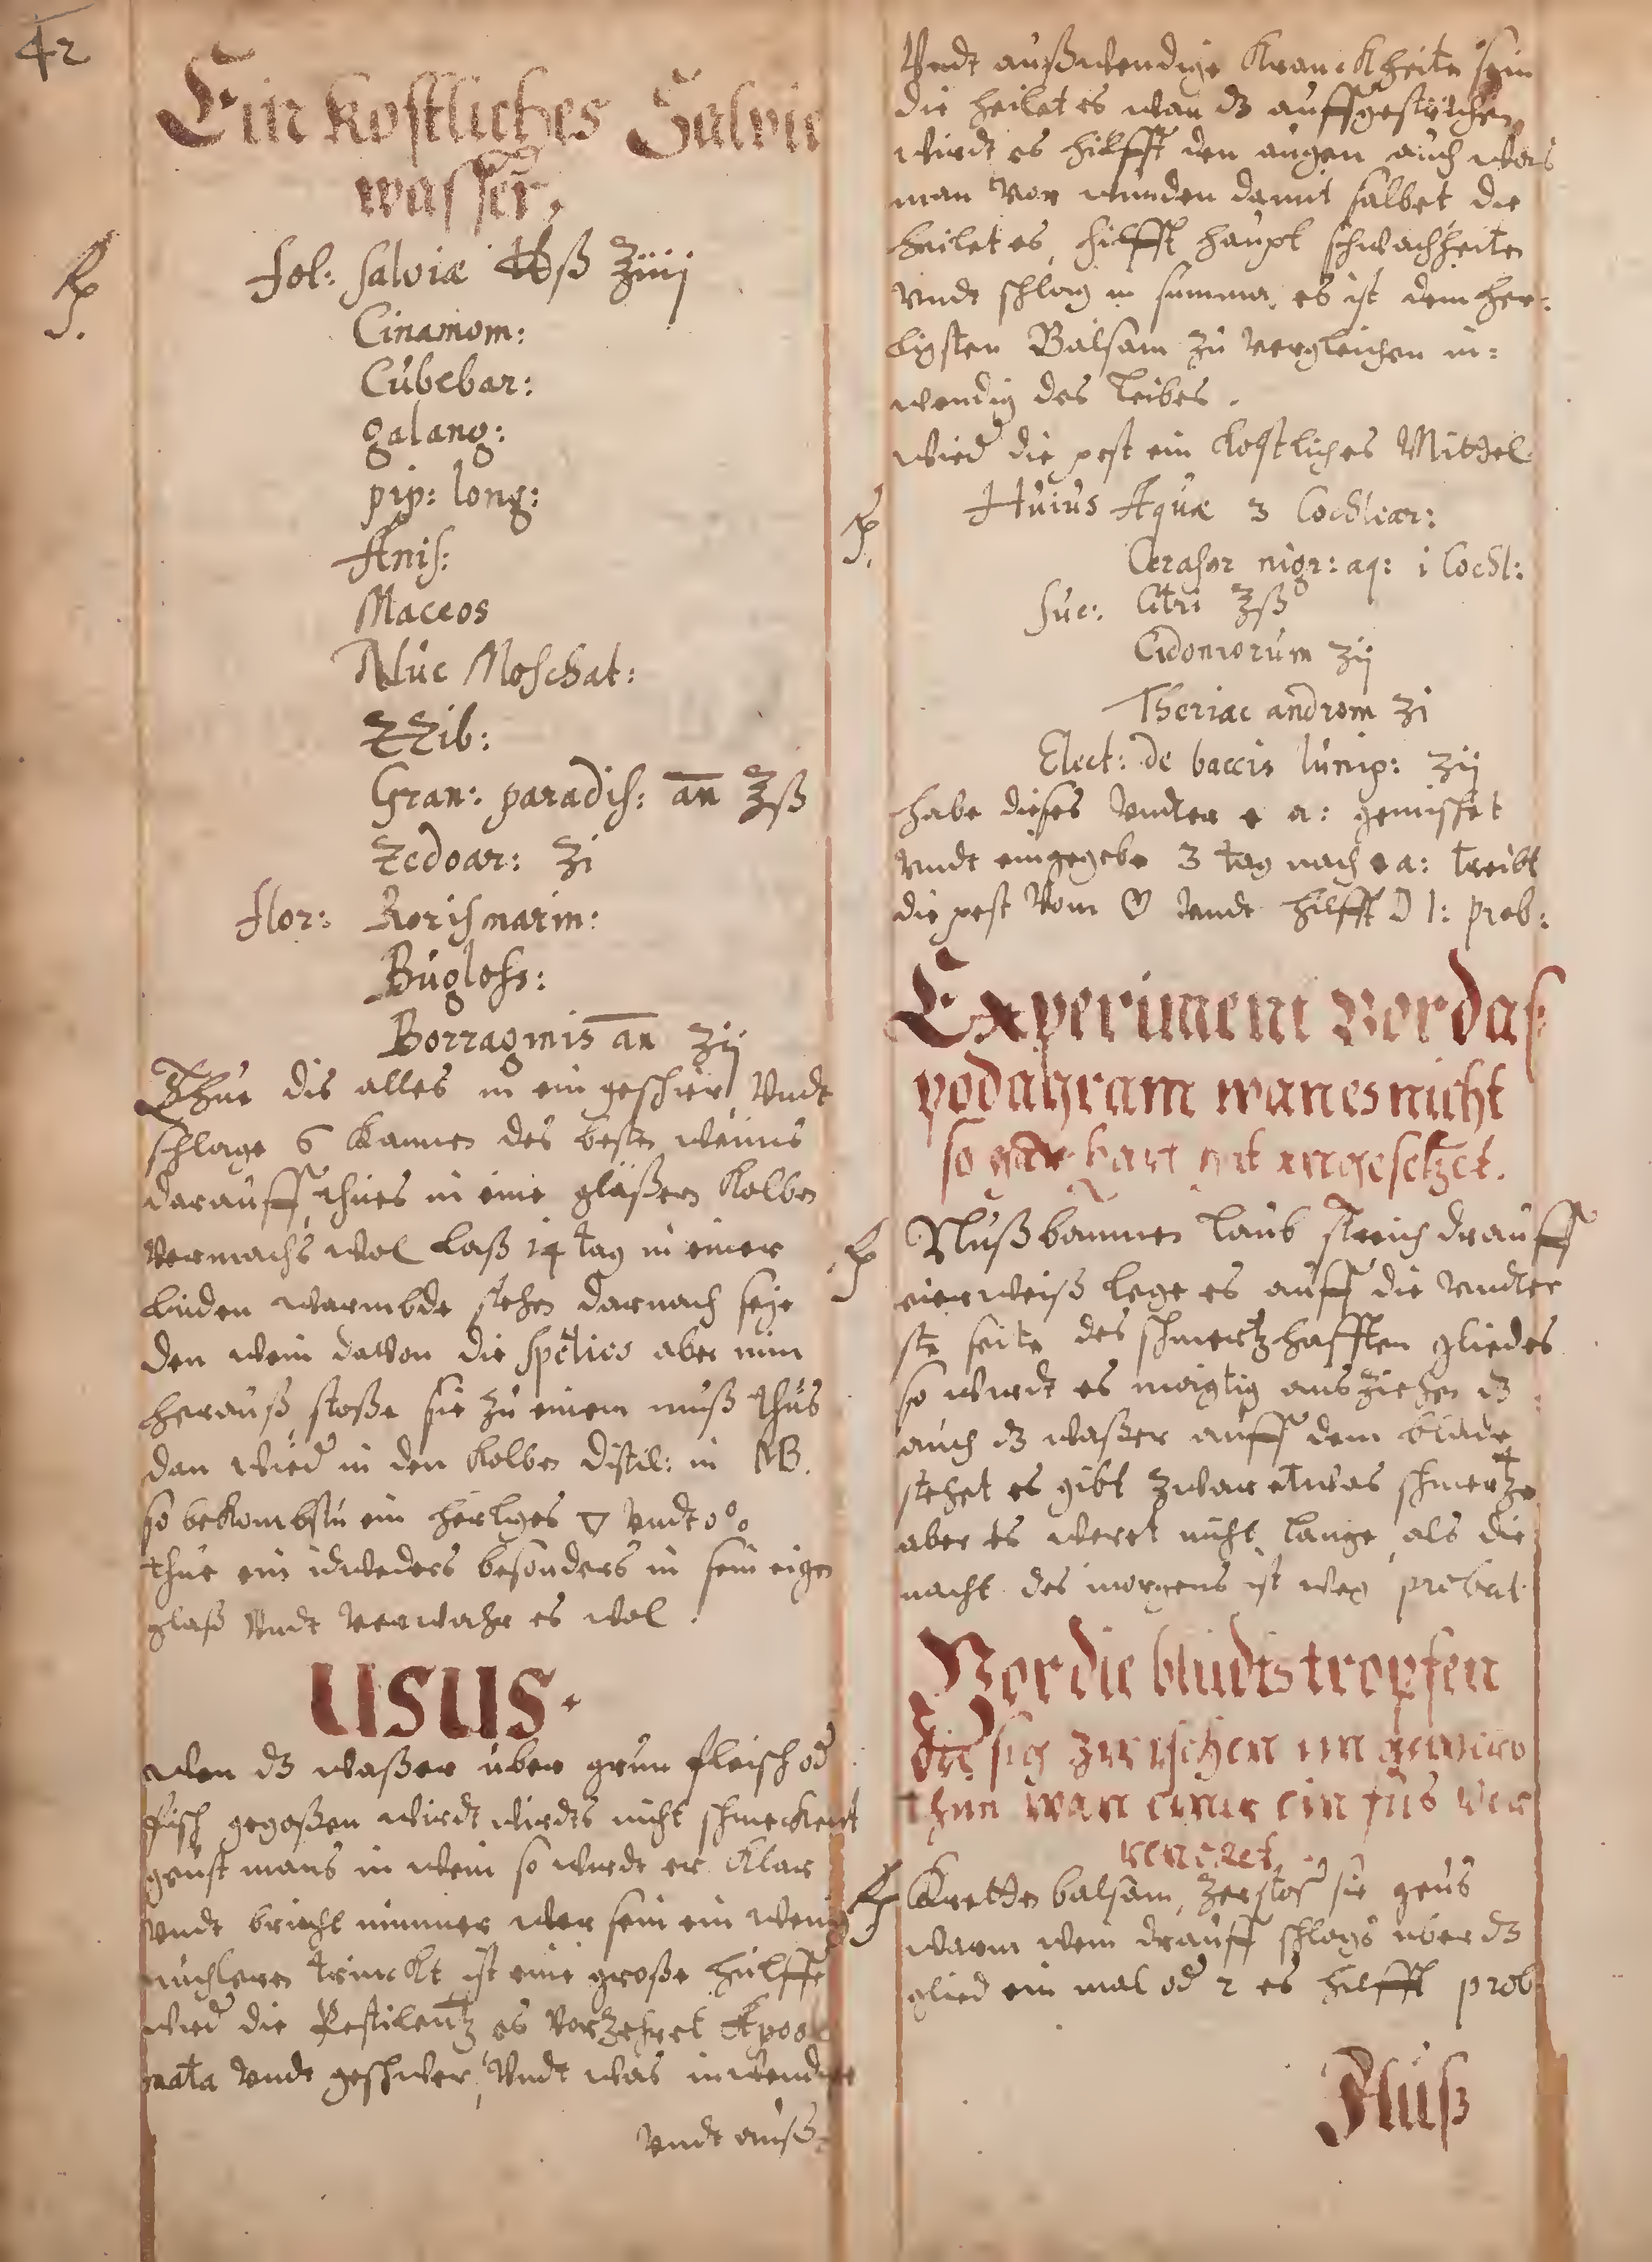 42
Ein kostliches Salvie
wasser.
Rp.
fol: salviæ ℔ß ℥iiij
Cinamom:
Cubebar:
galang:
pip: long:
Anis:
Maceos
Nuc Moschat:
ZZib:
Gran: paradis: an ℥ß
Zedoar: ʒi
flor: Rorismarin:
Bugloss:
Borraginis an ʒij
Thue dis alles in ein geschier Undt
schlage 6 Kannen des besten weins
darauff, thues in eine gläßern Kolben
vermachs wol laß 14 tag in einer
linden warmbde stehen darnach seije
den wein davon die species aber nim
herauß stoße sie zu einem muß thus
dan wied in den Kolben distil: in MB.
so bekombstu ein herliges ▽ Undt o°o
thue ein idweders besonders in sein eigen
glaß Undt verwahr es wol.
USUS.
Wen dz waßer uber grun fleisch od
fisch gegoßen wirdt wirdts nicht schmeckent
geust mans in wein so wirdt er Klar
Undt bricht nimmer wer sein ein wenig
nüchtern trinckt ist eine große hülffe
wied die Pestilentz es vorzehret Apos
mata Undt geschwer, Undt was inwendig
Undt auß=
Undt außwendige Kranckheiten sein
die heilet es wan dz auffgestrichen
wirdt es hilfft den augen auch was
man vor wunden damit salbet die
heilet es, hilfft haupt schwachheiten
Undt schlag in summa es ist dem her=
ligsten Balsam zu vergleichen in=
wendig des leibes.
Wied die pest ein kostliches Mittel
Rp.
Huius Aquæ 3 Cochlear:
Cerasor nigr: aq: i Cochl:
Suc: Citri ℥ß
Cidoniorum ʒij
Theriac androm ʒi
Elect: de baccis Iunip: ʒij
habe dieses Undter e a: gemischet
Undt eingegebe 3 tag nach e a: treibt
die pest vom ♡ Undt hilfft D I: prob:
Experiment vor das
podagram wan es nicht
so gar hart hat angesetzet.
Rp
Nußbaumen laub streich drauff
eierweiß lege es auff die Undter
ste seite des schmertzhafften gliedes
so wirdt es mägtig ausziehen dz
auch dz waßer auff dem blade
stehet es gibt zwar etwas schmertze
aber es weret nicht lange, als die
nacht des morgens ist weg probat.
Vor die bludtstropfen
die sich zwischen im gewero
then wan einer ein fus ver
rencket.
Rp
Kretten balsam, zerstos sie geus
warm wein drauff schlags uber dz
glied ein mal od 2 es hilfft prob
Fluß